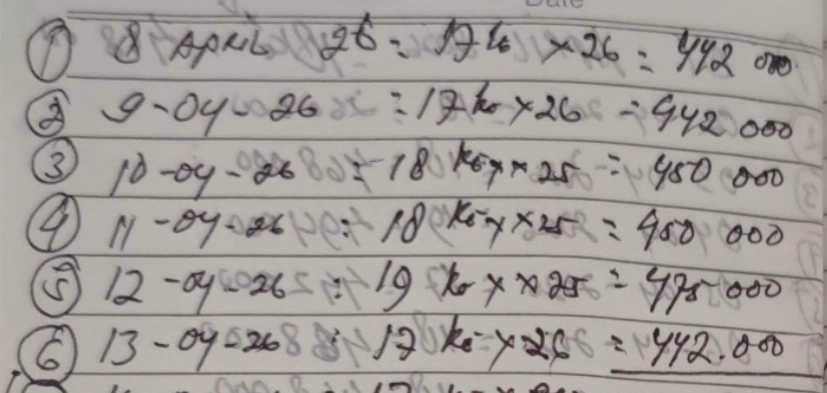 Date
① 8 April 26 = 17 ko × 26 = 442 000
② 9-04-26 = 17 ko × 26 = 442 000
③ 10-04-26 = 18 ko × × 25 = 450 000
④ 11-04-26 = 18 ko × × 25 = 450 000
⑤ 12-04-26 = 19 ko × × 25 = 475 000
⑥ 13-04-26 = 17 ko × 26 = 442.000